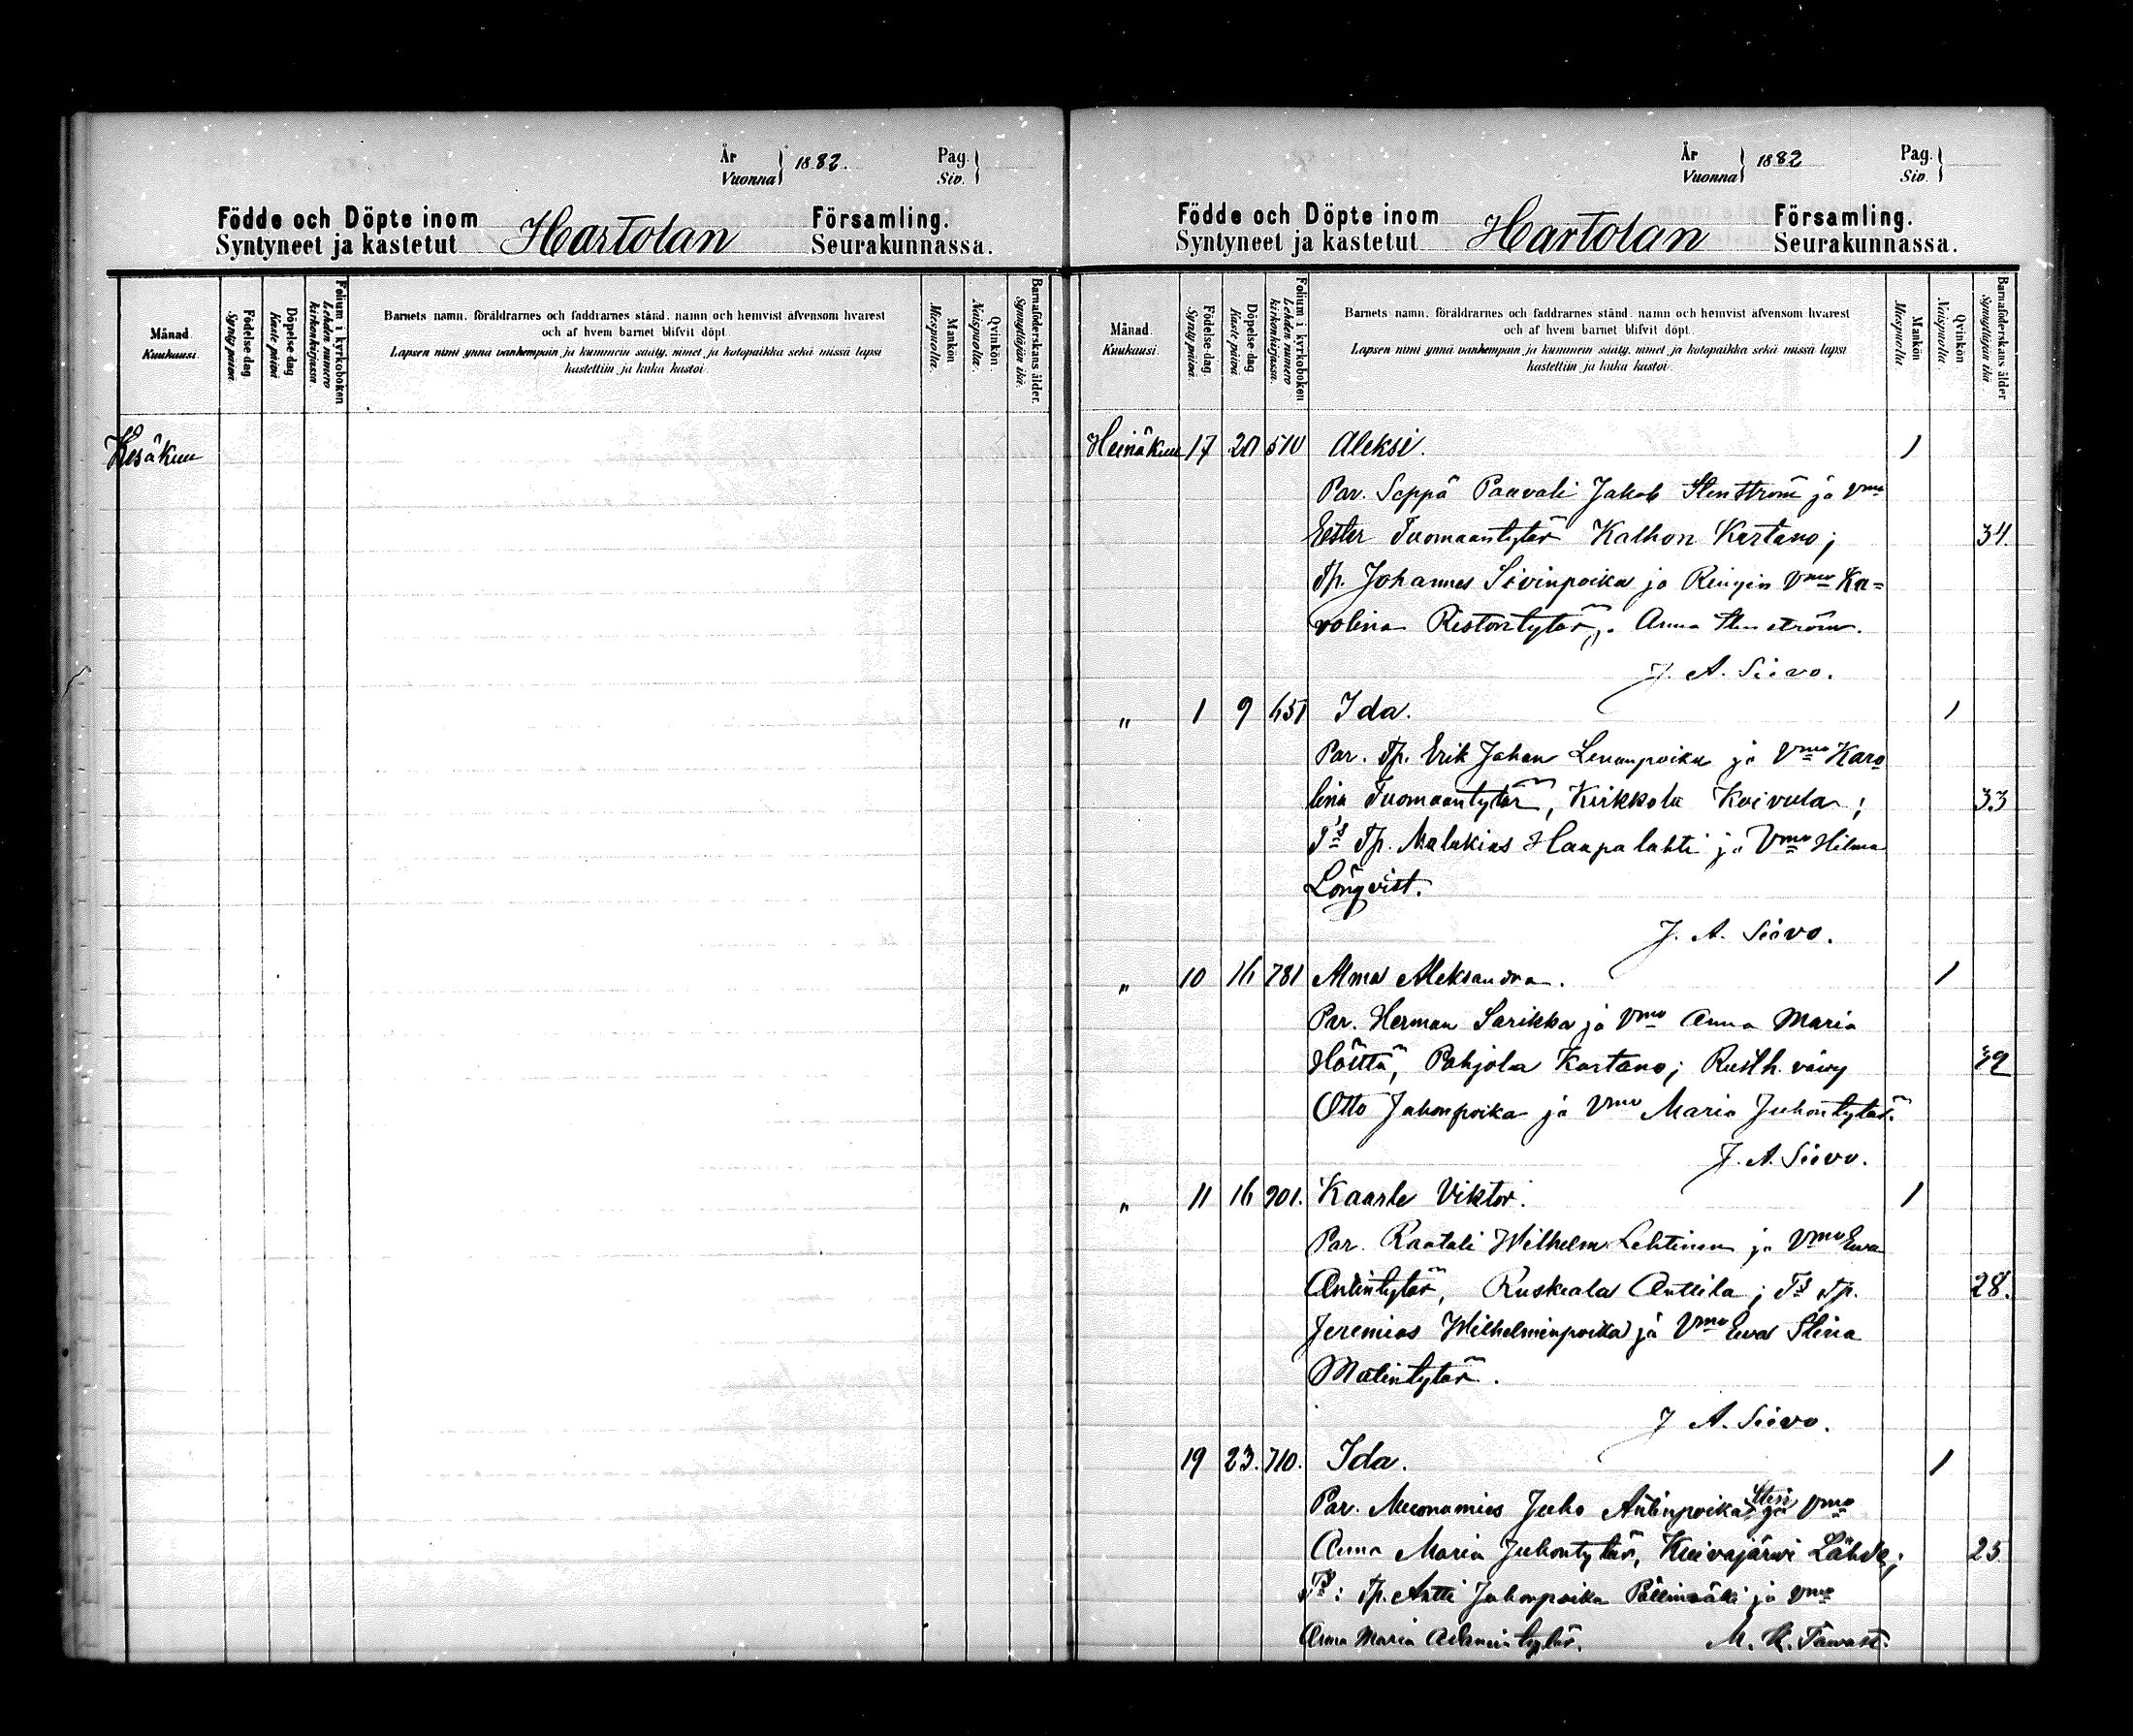 År
Vuonna } 1882.
Pag.
Siv. }
Födde och Döpte inom Hartolan Församling.
Syntyneet ja kastetut Seurakunnassa.
Månad.
Kuukausi.
Födelse-dag.
Synty päivä.
Döpelse-dag
Kaste päivä
Folium i kyrkoboken
Lehden numero kirkonkirjassa.
Barnets namn, föräldrarnes och faddrarnes stånd, namn och hemvist äfvensom hvarest
och af hvem barnet blifvit döpt.
Lapsen nimi ynnä vanhempain ja kummein sääty, nimet ja kotopaikka sekä missä lapsi
kastettiin ja kuka kastoi.
Mankön
Miespuolia.
Qvinkön.
Naispuolia.
Barnaföderskans ålder.
Synnyttäjän ikä.
Kesäkuu
År
Vuonna } 1882
Pag.
Siv. }
Födde och Döpte inom Hartolan Församling.
Syntyneet ja kastetut Seurakunnassa.
Månad.
Kuukausi.
Födelse-dag.
Synty päivä.
Döpelse-dag
Kaste päivä
Folium i kyrkoboken
Lehden numero kirkonkirjassa.
Barnets namn, föräldrarnes och faddrarnes stånd, namn och hemvist äfvensom hvarest
och af hvem barnet blifvit döpt.
Lapsen nimi ynnä vanhempain ja kummein sääty, nimet ja kotopaikka sekä missä lapsi
kastettiin ja kuka kastoi.
Mankön
Miespuolia
Qvinkön
Naispuolia.
Barnaföderskans ålder
Synnyttäjän ikä.
Heinäkuu 17 20 510 Aleksi. 1
Par. Seppä Paavali Jakob Stenström ja Vmo
Ester Tuomaantytär Kalhon Kartano; 34.
Tp. Johannes Sivinpoika ja Vmo Ka=
rolina Ristontytär, Anna Stenström.
J. A. Siivo.
" 1 9 651 Ida. 1
Par. Tp. Erik Johan Lenanpoika ja Vmo Karo
lina Tuomaantytär, Kirkkola Koivula; 33
Ts Tp. Malakias Haapalahti ja Vmo Hilma
Lönqvist.
J. A. Siivo.
" 10 16 781 Alma Aleksandra. 1
Par. Herman Sarikka ja Vmo Anna Maria
Höittä, Pohjola Kartano; Rusth. vävy 39
Otto Juhonpoika ja Vmo Maria Juhontytär.
J. A. Siivo.
" 11 16 901. Kaarle Viktor. 1
Par. Raatali Wilhelm Lehtinen ja Vmo Ewa
Antintytär, Ruskeala Anttila; Ts Tp. 28.
Jeremias Wilhelminpoika ja Vmo Ewa Stina
Matintytär.
J A. Siivo.
19 23. 710. Ida. 1
Par. Muonamies Juho Antinpoika ja Vmo
Anna Maria Juhontytär, Kuivajärvi Lähde; 25
Ts: Tp. Antti Juhonpoika Pällinmäki ja Vmo
Anna Maria Adamintytär. M. K. Tawast.